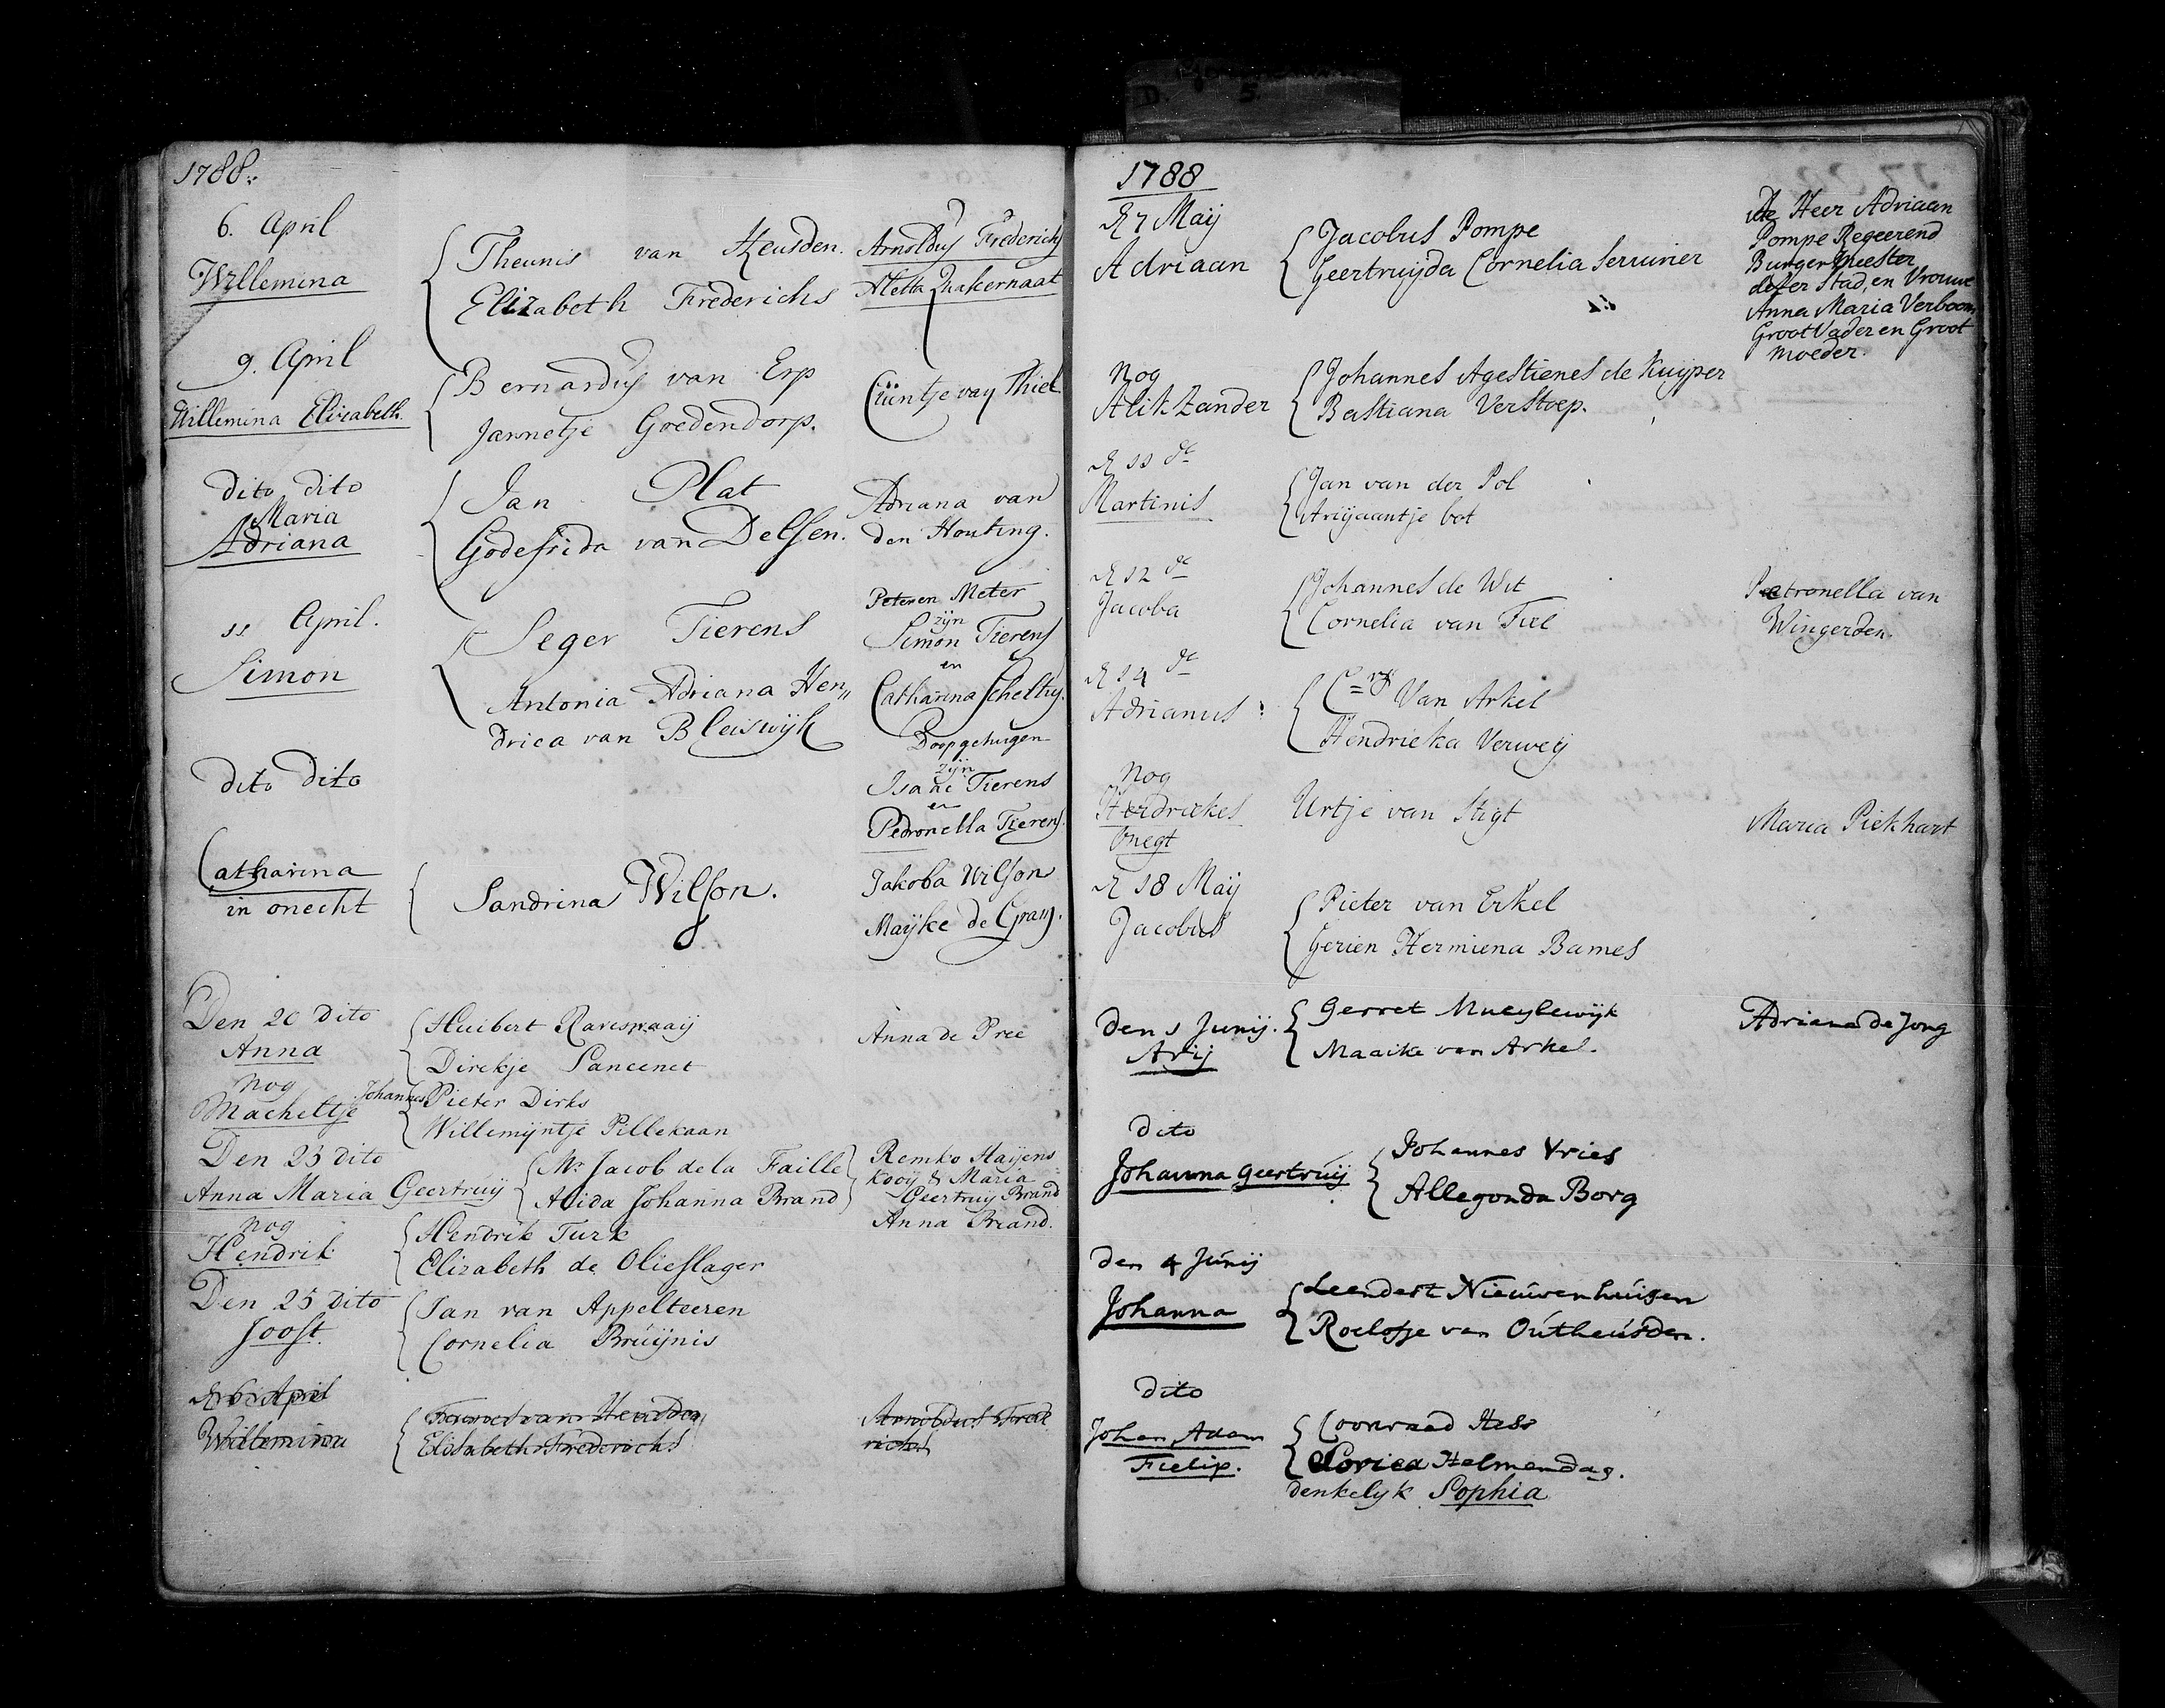 D. 5
1788.
6. April
Willemina
Theunis van Heusden.
Elizabeth Frederichs
Arnoldus Frederichs
Aletta Quakernaat
9. April
Willemina Elizabeth
Bernardus van Erp
Jannetje Goedendorp.
van Thiel
Dito Dito
Maria
Adriana
Jan Plat
Godefrida van Delsen.
Adriana van
den Houting.
11 April.
Simon
Seger Tierens
Antonia Adriana Hen„
drica van Bleiswijk
Peter en Meter
zijn
Simon Tierens
en
Catharina Scheltus.
Doopgetuigen
zijn
Isaac Tierens
en
Pedronella Tierens.
Dito Dito
Catharina
in onecht
Sandrina Wilson.
Jakoba Wilson
Maÿke de Graaf.
Den 20 Dito
Anna
Huibert Ravesnaaij
Dirckje Sancenet
Anna de Pree
Nog
Macheltje
Johannes Pieter Dirks
Willemijntje Pillekaan
Den 23 Dito
Anna Maria Geertruij
Mr. Jacob de la Faille
Alida Johanna Brand
Remko Haijens
Kooy & Maria
Geertruy Brand
Anna Briand.
Nog
Hendrik
Hendrik Turk
Elizabeth de Olieslager
Den 25 Dito
Joost.
Jan van Appelteeren
Cornelia Bruijnis
D 6 April
Willemina
van Heusden
Elisabeth Frederichs
Arnoldus Frede
richs
1788
D 7 Maij
Adriaan
Jacobus Pompe
Geertruijda Cornelia Serurier
de Heer Adriaan
Pompe Regeerend
Burgermeester
deser Stad, en Vrouwe
Anna Maria Verboom
Groot Vader en Groot
moeder.
Nog
Alikzander
Johannes Agestienes de Kuijper
Bastiana Verstoep.
D 11 do
Martinis
Jan van der Pol
Arijaantje bot
D 12 do
Jacoba
Johannes de Wit
Cornelia van Tiel
Petronella van
Wingerden.
D 14 do
Adrianus
Van Arkel
Hendrieka Verweij
Nog
Hendriekes
Onegt
Urtje van Stigt
Maria Piekhart
D 18 Maij
Jacobus
Pieter van Erkel
Gerien Hermiena Bames
den 1 Junij.
Arij
Gerret Mueylewijk
Maaike van Arkel.
Adriana de Jong
dito
Johanna Geertruij
Johannes Vries
Allegonda Borg
den 4 Junij
Johanna
Leendert Nieuwenhuisen
Roelofje van Outheusden.
dito
Johan Adam
Fielip.
Coonraad Hess
Sovica Helmendag.
denkelyk Sophia